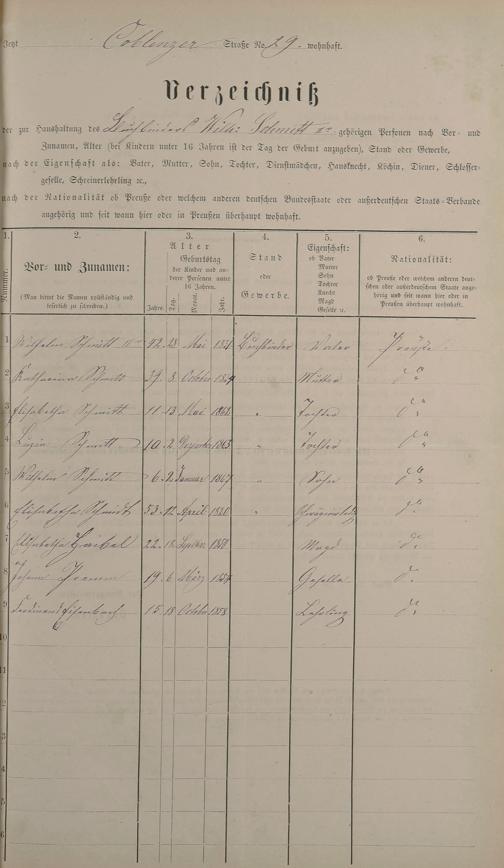 Jetzt Coblenzer Straße No. 29. wohnhaft.
Verzeichniß
der zur Haushaltung des Buchbinders Wilh: Schmitt gehörigen Personen nach Vor- und
Zunamen, Alter (bei Kindern unter 16 Jahren ist der Tag der Geburt anzugeben), Stand oder Gewerbe,
nach der Eigenschaft als: Vater, Mutter, Sohn, Tochter, Dienstmädchen, Hausknecht, Köchin, Diener, Schlosser-
geselle, Schreinerlehrling ꝛc.,
nach der Nationalität ob Preuße oder welchem anderen deutschen Bundesstaate oder außerdeutschen Staats-Verbande
angehörig und seit wann hier oder in Preußen überhaupt wohnhaft.
1. 2. 3. 4. 5. 6.
Nummer.
Vor- und Zunamen:
(Man bittet die Namen vollständig und
leserlich zu schreiben.)
Alter
Geburtstag
der Kinder und an-
derer Personen unter
16 Jahren.
Jahre. Tag. Monat. Jahr.
Stand
oder
Gewerbe.
Eigenschaft:
ob Vater
Mutter
Sohn
Tochter
Knecht
Magd
Geselle u.
Nationalität:
ob Preuße oder welchem anderen deut-
schen oder außerdeutschen Staate ange-
hörig und seit wann hier oder in
Preußen überhaupt wohnhaft.
1 Wilhelm Schmitt 42 28 Mai 1831 Buchbinder Vater Preuße
2 Katharina Schmitt 39 3 October 1834 Mutter do
3 Elisabetha Schmitt 11 13 Mai 1862 " Tochter do
4 Schmitt 10 2 Dezember 1863 " Tochter do
5 Wilhelm Schmitt 6 2 Januar 1867 " Sohn do
6 Elisabetha Schmidt 53 12 April 1820 " do
7 Elisabetha 22 18 Magd do
8 Johann 19 6 März 1854 Geselle do
9 Ferdinand Eisenbach 15 18 October 1858 Lehrling do
10
1
2
3
4
5
6